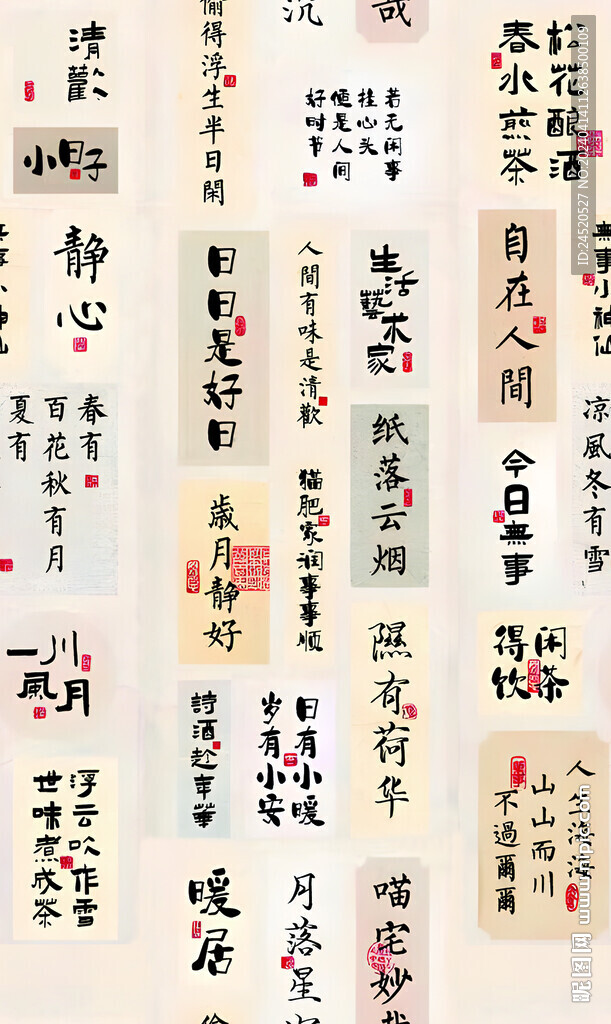 清歡
小日子
偷得浮生半日閑
沉
哉
若无闲事
挂心头
便是人间
好时节
松花酿酒
春水煎茶
静心
日日是好日
人間有味是清歡
生活
藝术家
自在人間
無事小神仙
無事小神仙
春有
百花秋有月
夏有
凉風冬有雪
歲月静好
猫肥家润事事顺
纸落云烟
今日無事
隰有荷华
闲茶
得饮
一川
風月
詩酒趁年華
日有小暖
岁有小安
浮云吹作雪
世味煮成茶
人生海海
山山而川
不過爾爾
暖居
月落星沉
喵宅妙哉
偷
ID:24520527 NO:20240414112638500109
昵图网 www.nipic.com